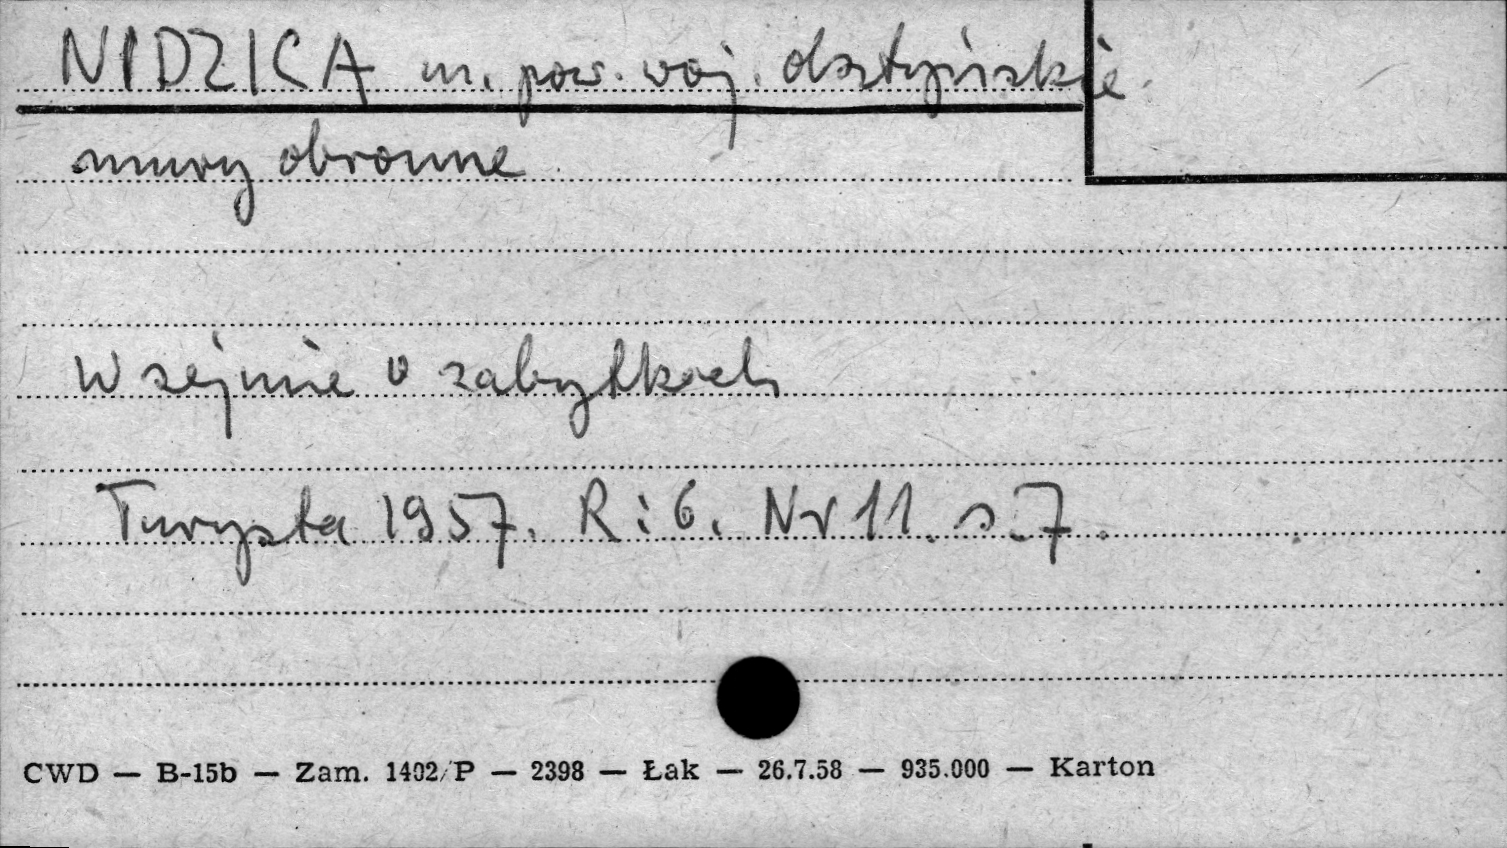 NIDZICA m. pow. woj. olsztyńskie
mury obronne
W sejmie o zabytkach
Turysta 1957. R: 6. Nr 11. s. 7.
CWD — B-15b — Zam. 1402/P — 2398 — Łak — 26.7.58 — 935.000 — Karton